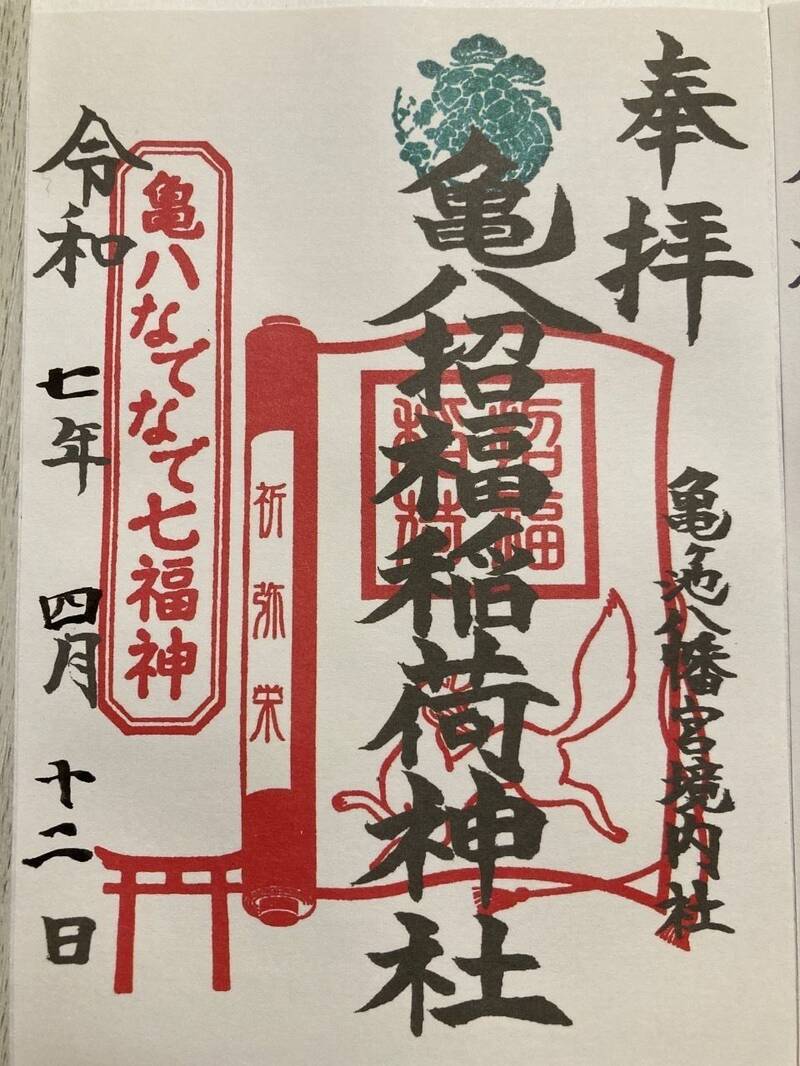 奉拝
亀ヶ池八幡宮境内社
亀八招福稲荷神社
招福
稲荷
祈弥栄
亀八なでなで七福神
令和七年四月十二日